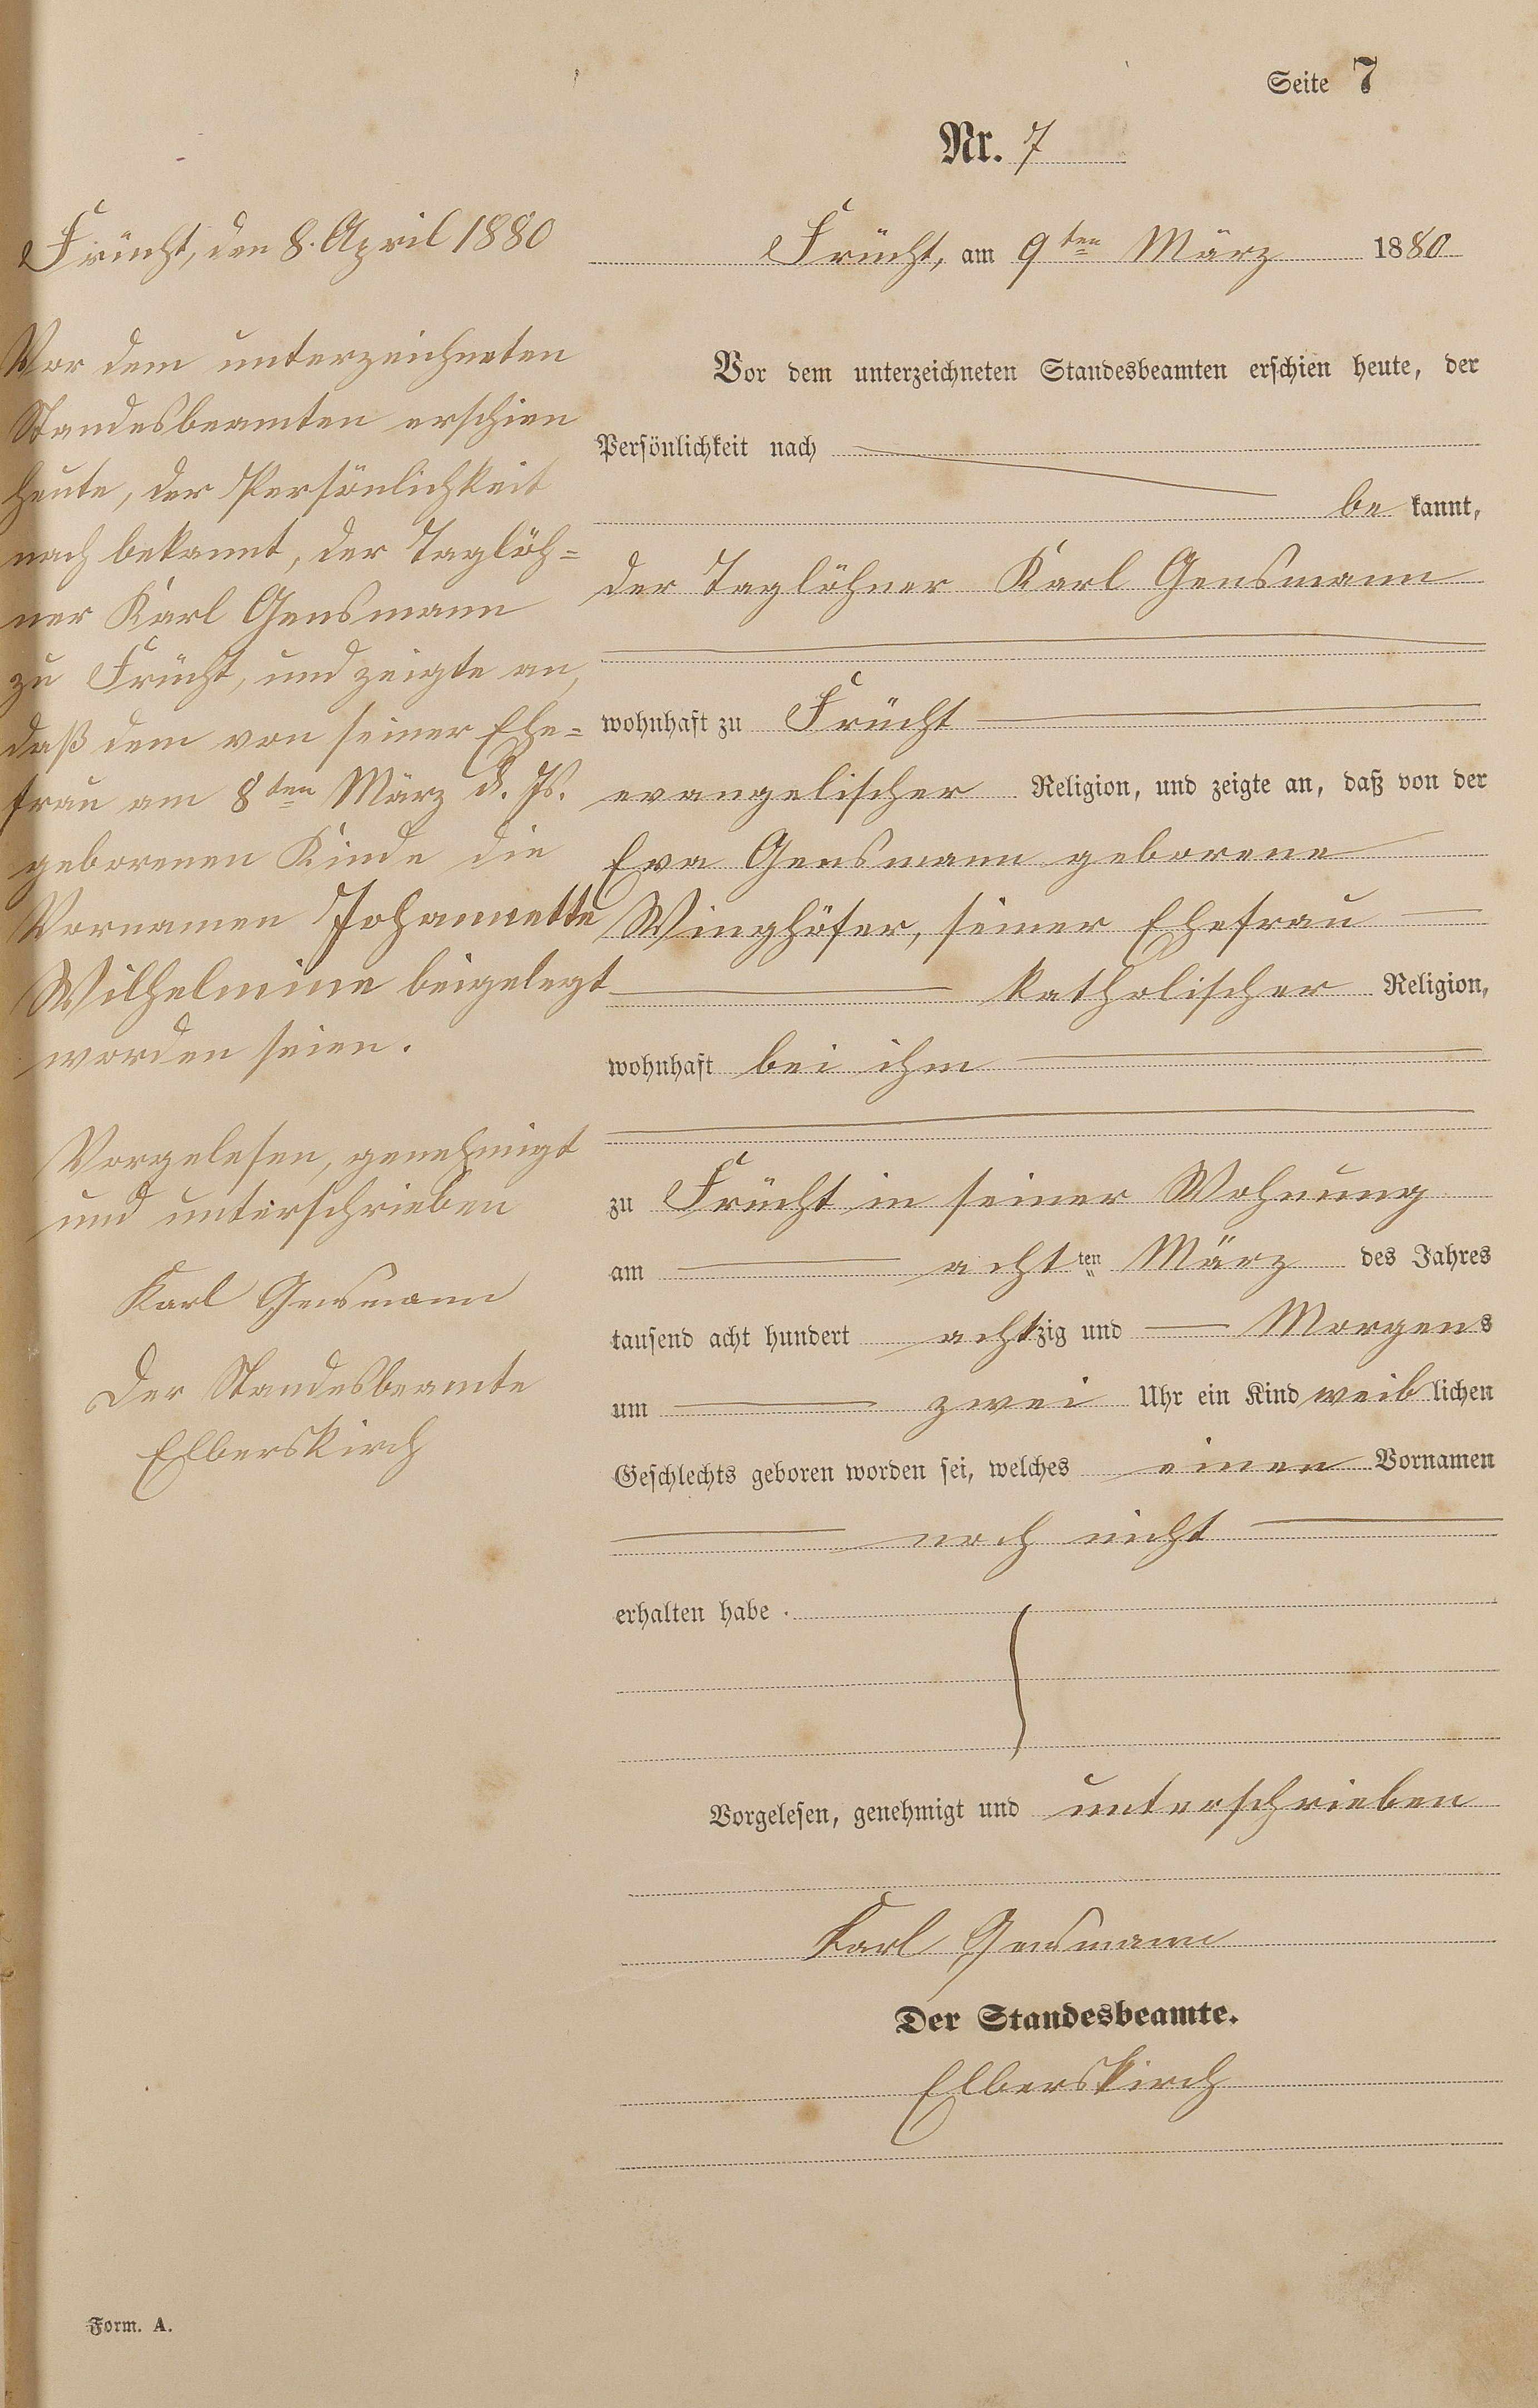 Seite 7
Nr. 7
Frücht, den 8. April 1880
Vor dem unterzeichneten
Standesbeamten erschien
heute, der Persönlichkeit
nach bekannt, der Taglöh=
ner Karl Gensmann
zu Frücht, und zeigte an,
daß dem von seiner Ehe=
frau am 8ten März d. Js.
geborenen Kinde die
Vornamen Johannette
Wilhelmine beigelegt
worden seien.
Vorgelesen, genehmigt
und unterschrieben
Karl Gensmann
Der Standesbeamte
Elberskirch
Frücht, am 9ten März 1880
Vor dem unterzeichneten Standesbeamten erschien heute, der
Persönlichkeit nach
be kannt,
der Taglöhner Karl Gensmann
wohnhaft zu Frücht
evangelischer Religion, und zeigte an, daß von der
Eva Gensmann geborene
Winghöfer, seiner Ehefrau
katholischer Religion,
wohnhaft bei ihm
zu Frücht in seiner Wohnung
am achtten März des Jahres
tausend acht hundert achtzig und Morgens
um zwei Uhr ein Kind weiblichen
Geschlechts geboren worden sei, welches einen Vornamen
noch nicht
erhalten habe.
Vorgelesen, genehmigt und unterschrieben
Karl Gensmann
Der Standesbeamte.
Elberskirch
Form. A.